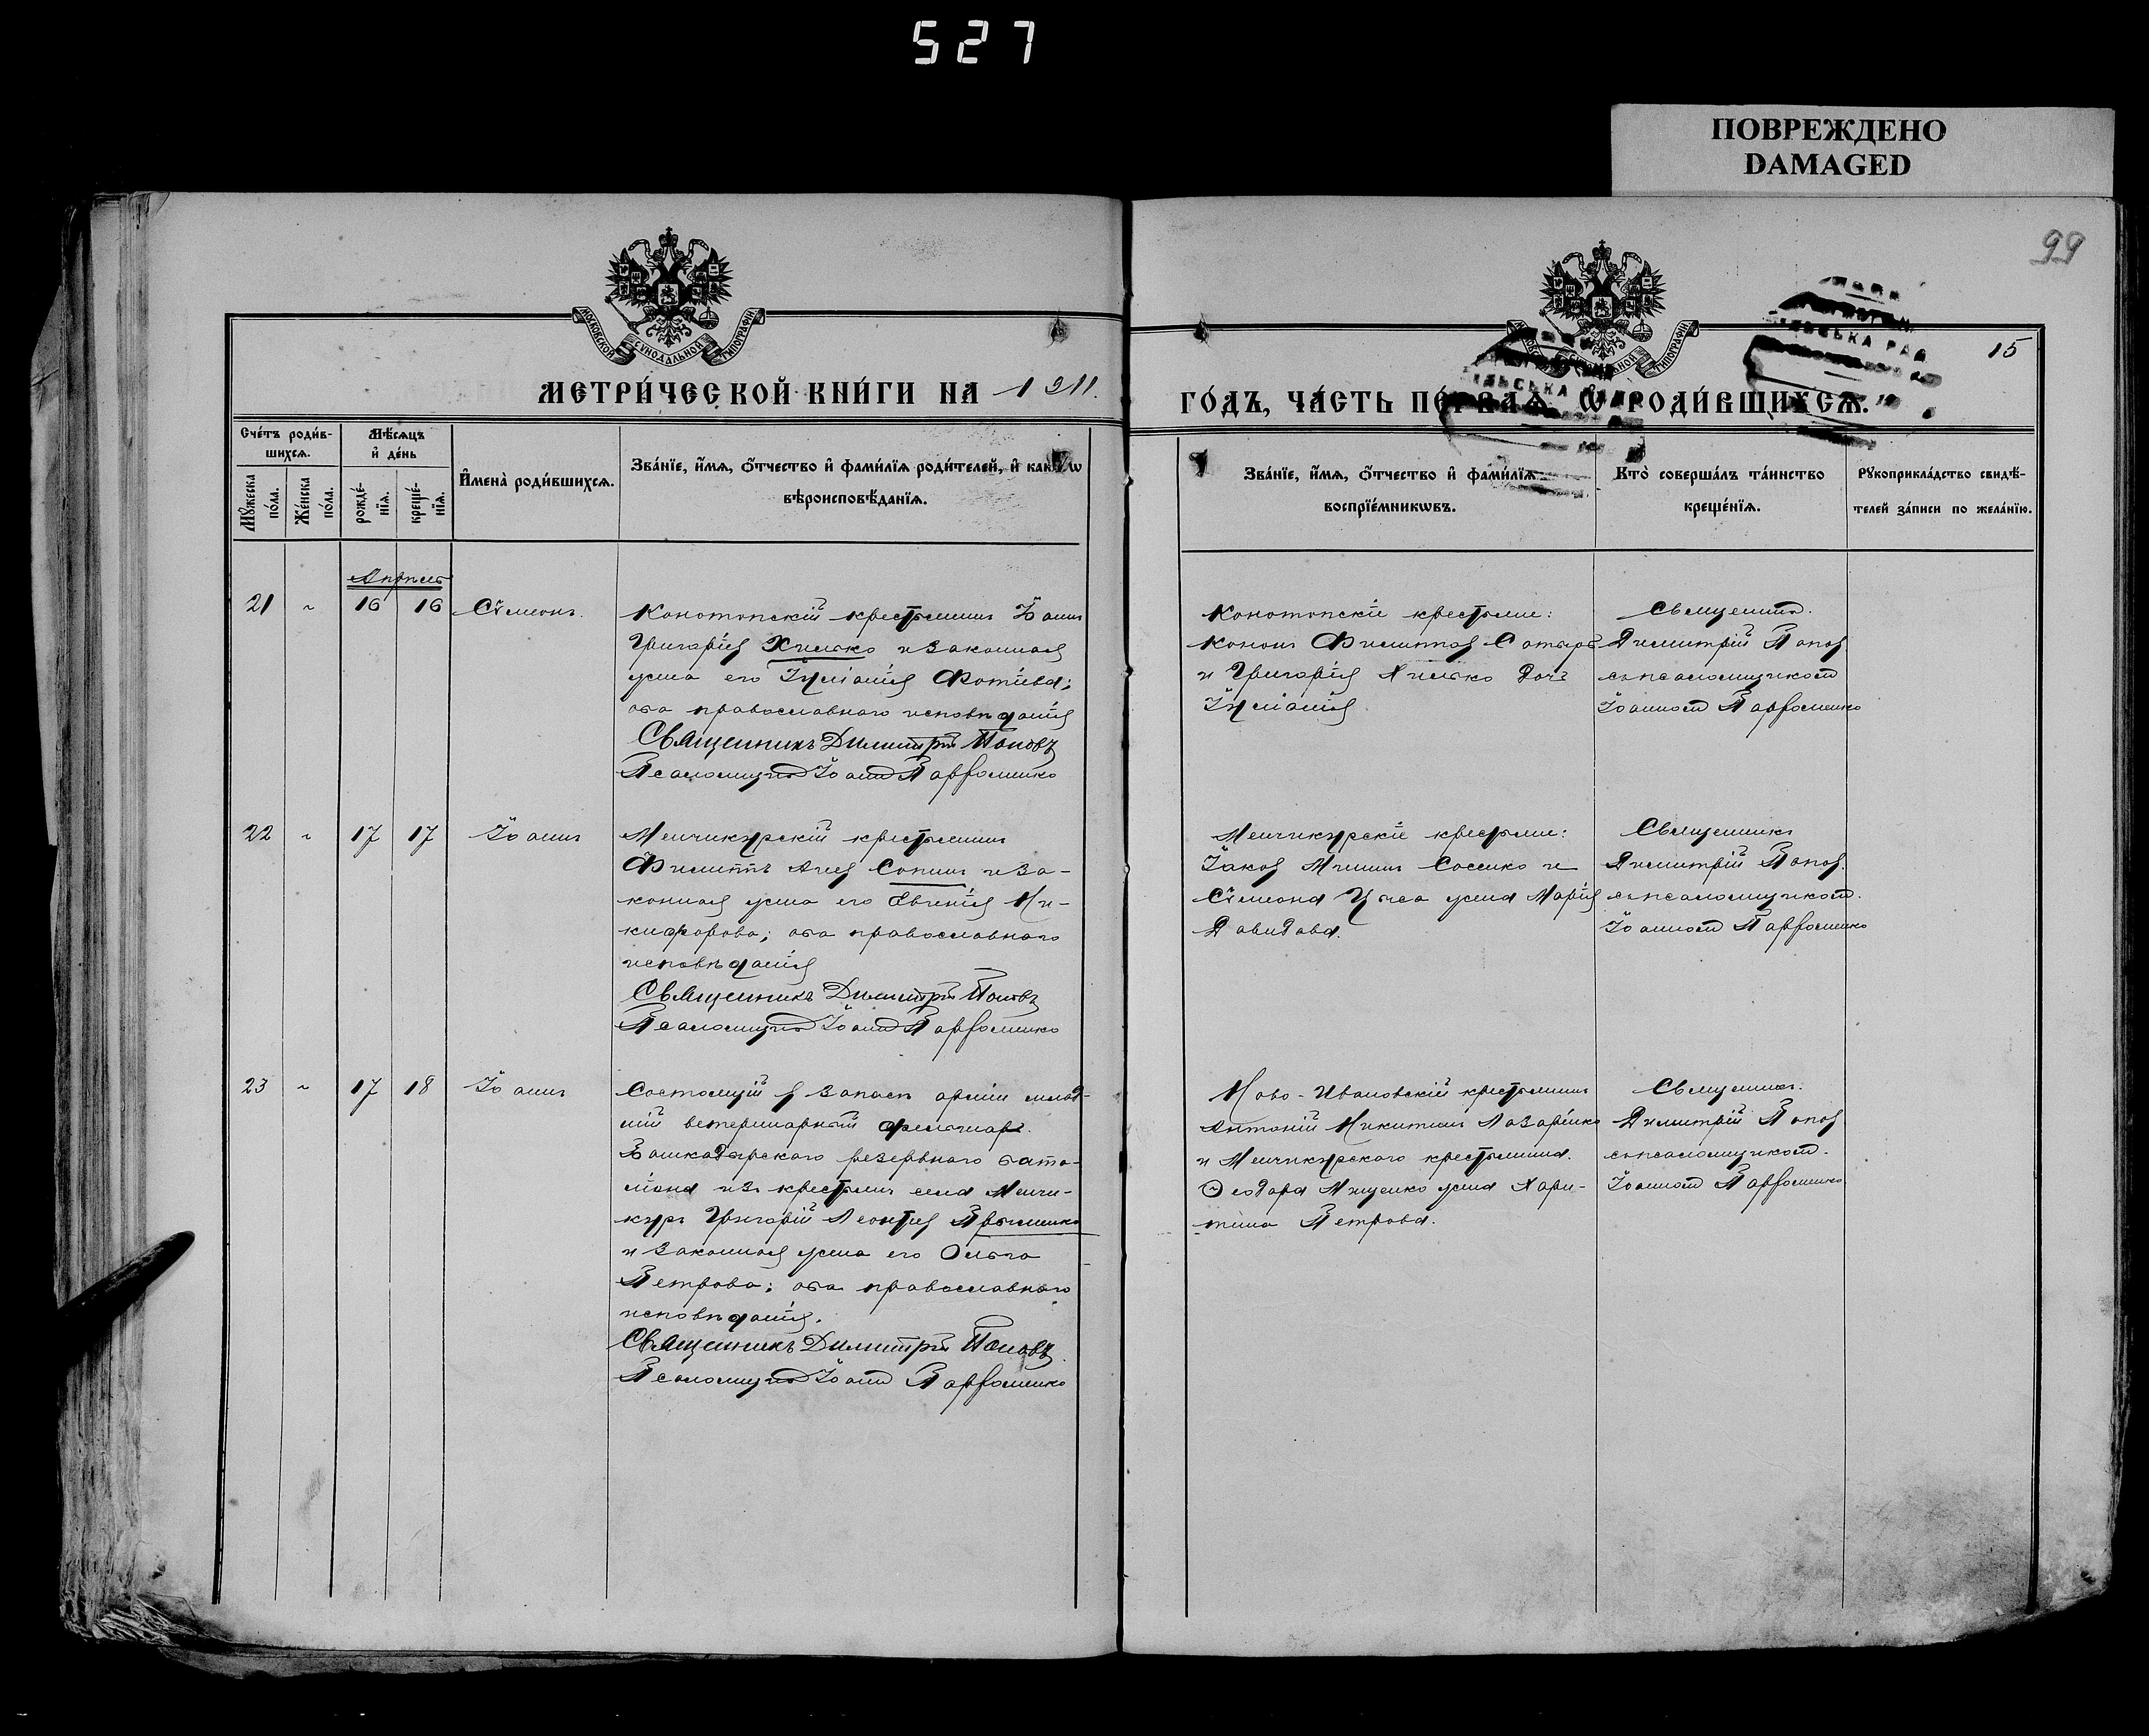 527
ПОВРЕЖДЕНО
DAMAGED
99
МОСКОВСКОЙ СѴНОДАЛЬНОЙ ТИПОГРАФІИ
15
МЕТРИ́ЧЕСКОЙ КНИ́ГИ НА 1911.
ГО́ДЪ, ЧА́СТЬ ПЕ́РВАѦ, Ѡ РОДИ́ВШИХСѦ.
Сче́тъ роди́в-
шихсѧ.
Мѣ́сѧцъ
и҆ де́нь
Мꙋ́жеска по́ла.
Же́нска по́ла.
рожде́-
нїѧ.
креще́-
нїѧ.
И҆мена̀ роди́вшихсѧ.
Зва́нїе, и҆́мѧ, ѻ҆́тчество и҆ фами́лїѧ роди́телей, и҆ како́гѡ
вѣроисповѣ́данїѧ.
Зва́нїе, и҆́мѧ, ѻ҆́тчество и҆ фами́лїѧ
воспрїе́мникѡвъ.
Кто̀ соверша́лъ та́инство
креще́нїѧ.
Рꙋкоприкла́дство свидѣ́-
телей за́писи по жела́нїю.
Апрель
21 16 16 Сѵмеонъ.
Конотопскій крестьянинъ Іоаннъ
Григоріев Хилько и законная
жена его Іуліанія Фотіева;
оба православнаго исповѣданія
Священникъ Димитрій Поповъ
Псаломщикъ Іоаннъ Парфоменко
Конотопскіе крестьяне:
Конон Филиппов
и Григорія Хилько дочь
Іуліанія
Священникъ
Димитрій Попов
съ псаломщиком
Іоанном Парфоменко
22 17 17 Іоаннъ
Менчикурскій крестьянинъ
Филиппъ Сопинъ и за-
конная жена его Евгенія Ни-
кифорова; оба православнаго
исповѣданія
Священникъ Димитрій Поповъ
Псаломщикъ Іоаннъ Парфоменко
Менчикурскіе крестьяне:
Іаков Мининъ и
Сѵмеона жена Марія
Давидова.
Священникъ
Димитрій Попов.
съ псаломщиком.
Іоанном Парфоменко
23 17 18 Іоаннъ
Состоящій в запасѣ арміи млад-
шій ветеринарный фельдшеръ
Башкадырскаго резервнаго бата-
ліона изъ крестьянъ села Менчи-
куръ Григорій Леонтіев
и законная жена его Ольга
Петрова; оба православнаго
исповѣданія.
Священникъ Димитрій Поповъ
Псаломщикъ Іоаннъ Парфоменко
Ново-Ивановскій крестьянинъ
Антоній Никитинъ Лазаренко
и Менчикурскаго крестьянина.
Ѳеодора Мищенко жена Хари-
тина Петрова.
Священникъ.
Димитрій Попов
съ псаломщиком.
Іоанном Парфоменко